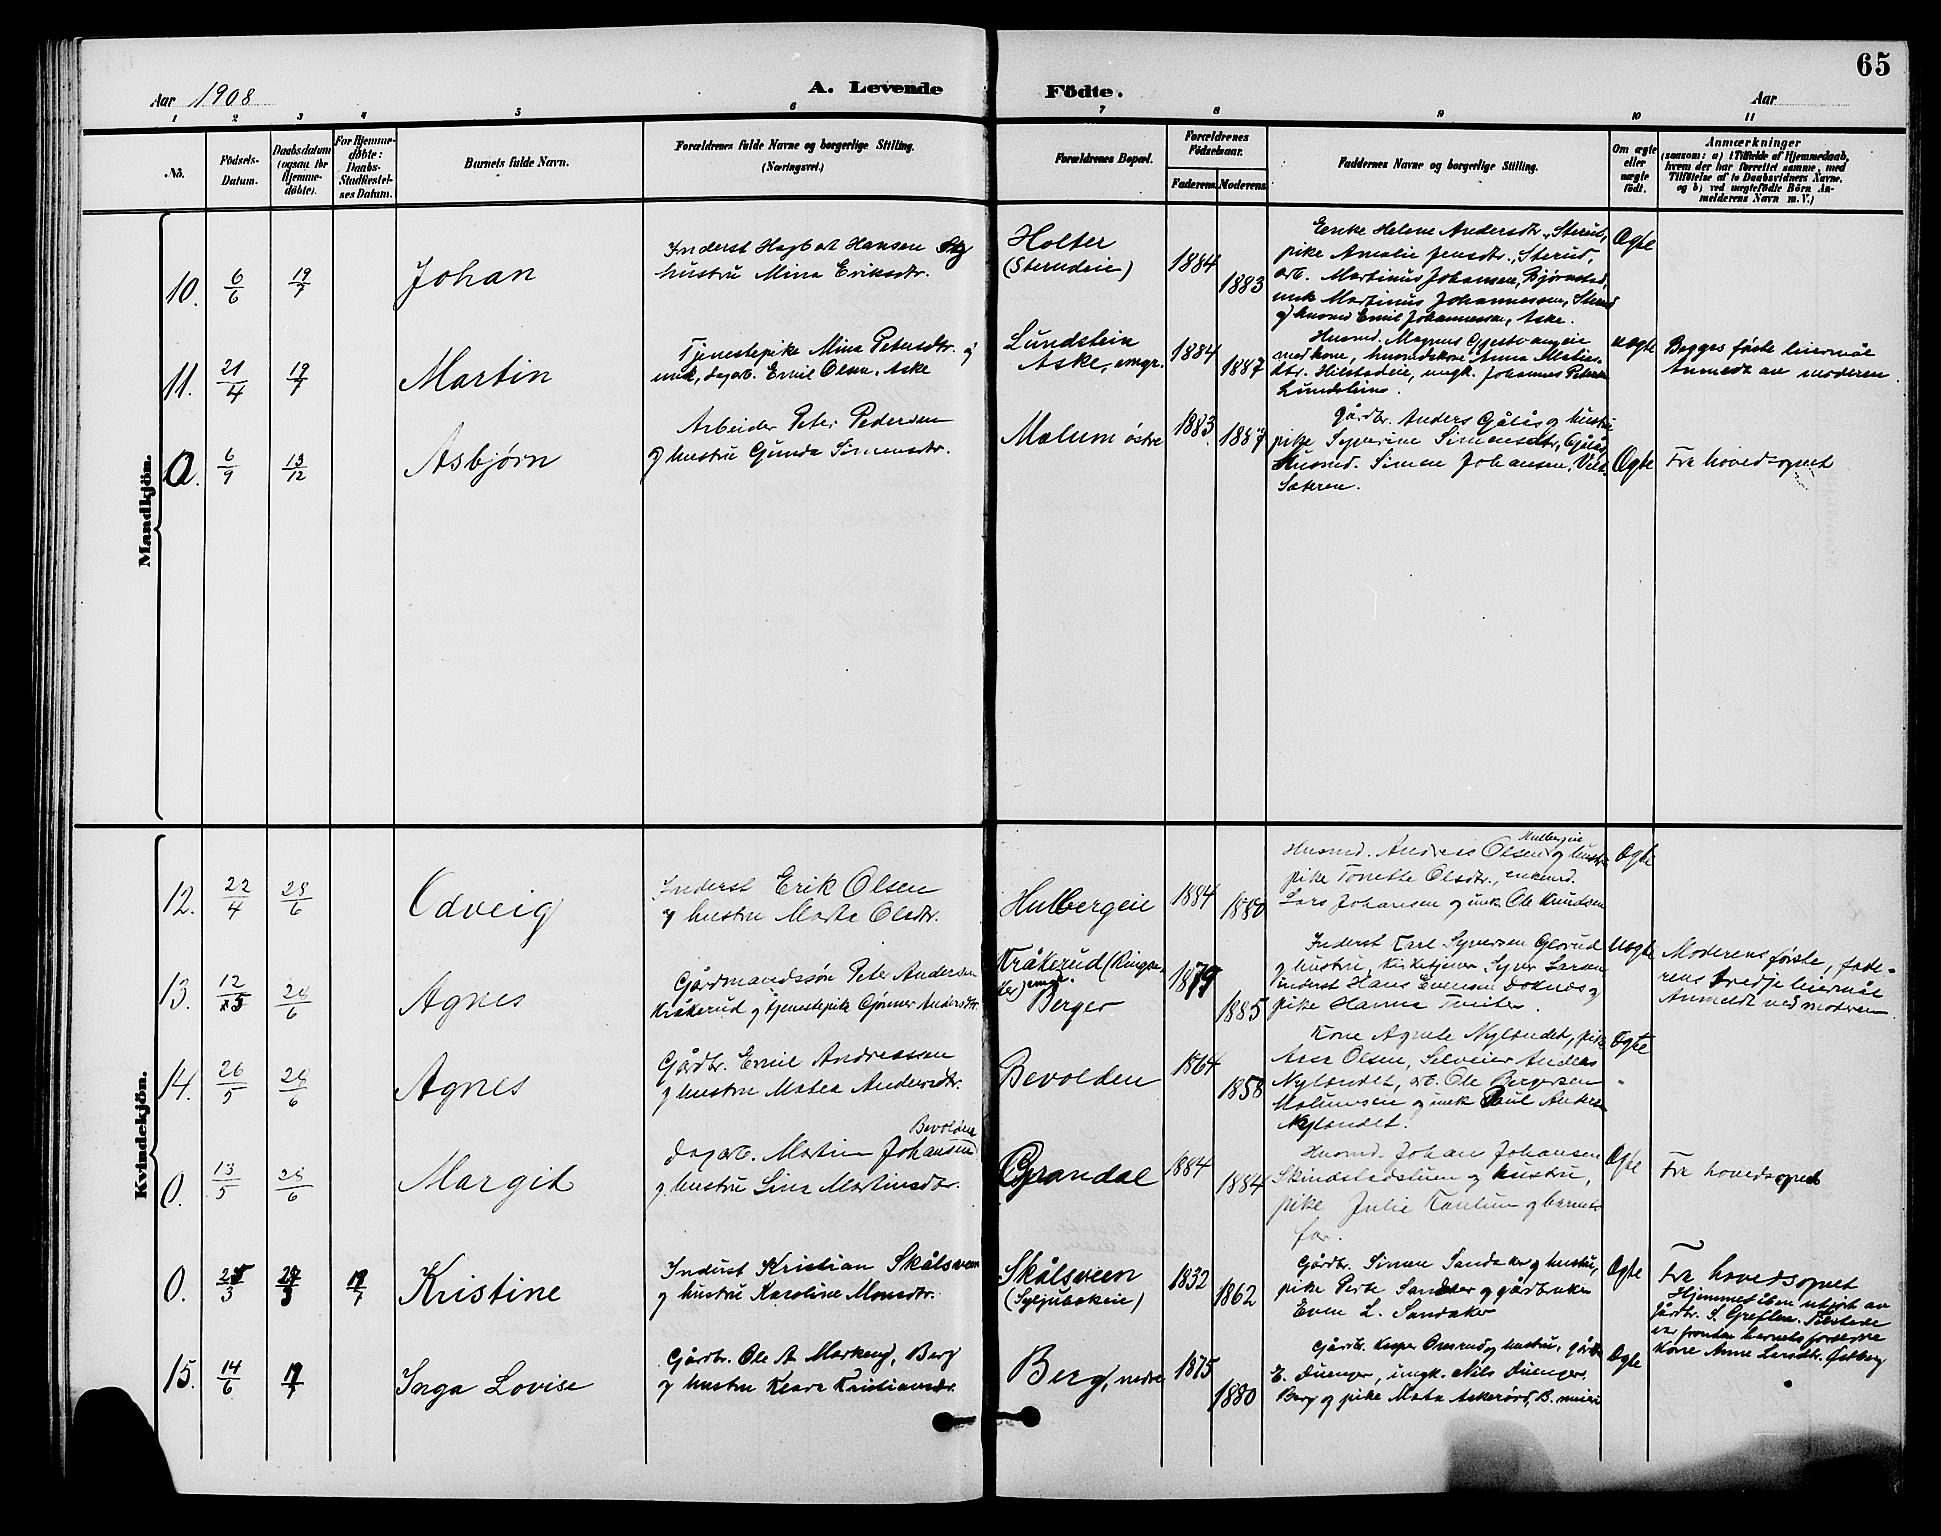 65
Aar 1908
A. Levende Födte.
Aar
1 2 3 4 5 6 7 8 9 10 11
No.
Födsels-Datum.
Daabsdatum (ogsaa for Hjemme-döbte).
For Hjemme-döbte: Daabs-Stadfæstel-ses Datum.
Barnets fulde Navn.
Forældrenes fulde Navne og borgerlige Stilling. (Næringsvei.)
Forældrenes Bopæl.
Forældrenes Födselsaar.
Faderens. Moderens.
Faddernes Navne og borgerlige Stilling.
Om ægte eller uægte födt.
Anmærkninger
(saasom: a) i Tilfælde af Hjemmedaab,
hvem der har forrettet samme, med
Tilföielse af to Daabsvidners Navne.
og b) ved uægtefödte Börn An-
melderens Navn m. V.)
Mandkjön.
10. 6/6 19/7 Johan
Inderst Hagbart Hansen og
hustru Mina Eriksdtr.
Holter
1884 1883
Enke Helene Andersdtr., Sterud,
pike Amalie Jensdtr., Sterud,
arb. Martinus Johansen, Bjørnstad,
unk. Martinus Johannessen, Sterud
og husmd. Emil Johannessen, Aske.
Ægte
11. 21/4 19/7 Martin
Tjenestepike Mina Petersdtr. og
unk., dagarb. Emil Olsen, Aske
Lundstein
Aske, omgr.
1884 1887
Husmd. Magnus Gjestvangeie
med kone, husmdskone Anna
dtr. Hilstadeie, ungk. Johannes Petersen
Lundstein.
uægte
Begges første leiermål
Anmeldt av moderen
0. 6/9 13/12 Asbjørn
Arbeider Peter Pedersen
og hustru Gunda Simensdtr.
Mælum østre
1883 1887
Gårdbr. Anders Gålås og hustru
pike Syverine Simensdtr., Gålås,
Husmd. Simen Johansen,
Sæteren.
Ægte
Fra hovedsognet
Kvindekjön.
12. 22/4 28/6 Odveig
Inderst Erik Olsen
og hustru Marta Olsdtr.
Hulbergeie
1884 1880
Hulbergeie
Husmd. Andreas Olsen og hustru
pike Tonette Olsdtr., enkemd.
Lars Johansen og unk. Ole Knudsen
Ægte
13. 12/5 28/6 Agnes
Gårdmandssøn Peter Andersen
Kråkerud og tjenestepike Gjønner Andersdtr.
Kråkerud (Ringsa-
ker) omgr.
Berger
1879 1885
Inderst Karl Syversen Glorud
og hustru, kirketjener Syver Larsen
inderst Hans Evensen Doknes og
pike Hanna Tveiter.
Uægte
Moderens første, fade-
rens tredje leiermål
Anmeldt ved moderen
14. 26/5 28/6 Agnes
Gårdbr. Emil Andreassen
og hustru Matea Andersdtr.
Bevolden
1864 1858
Kone Agnete Nylandet, pike
Åsa Olsen, Selveier Anders
Nylandet, arb. Ole Bergersen
Mælumseie og unk. Paul Andersen
Nylandet.
Ægte
0. 13/5 28/6 Margit
Bevolden
dagarb. Martin Johansen
og hustru Lina Martinsdtr.
Grandal
1884 1884
Husmd. Johan Johansen
Skindstadstuen og hustru,
pike Julie og barnets
far.
Ægte
Fra hovedsognet
0. Kristine
Inderst Kristian Skålsveen
og hustru Karoline Monsdtr.
Skålsveen
(Syljubakeie)
1832 1862
Gårdbr. Simen Sandaker og hustru,
pike Berte Sandaker og gårdbruker
Even L. Sandaker
Ægte
Fra hovedsognet
Hjemmedåben utført av
gårdbr. S. Greftlen. Tilstede
var foruten barnets forældre
kone Anne Larsdtr. Østberg
15. 14/6 Inga Lovise
Gårdbr. Ole A. Markeng, Berg
og hustru Klara Kristiansdtr.
Berg, nedre
1875 1880
Gårdbr. Kasper Onsrud og hustru, gårdbr.
E. Duenger, ungk. Nils Duenger,
Berg og pike Marta Askerød, B. meieri
Ægte